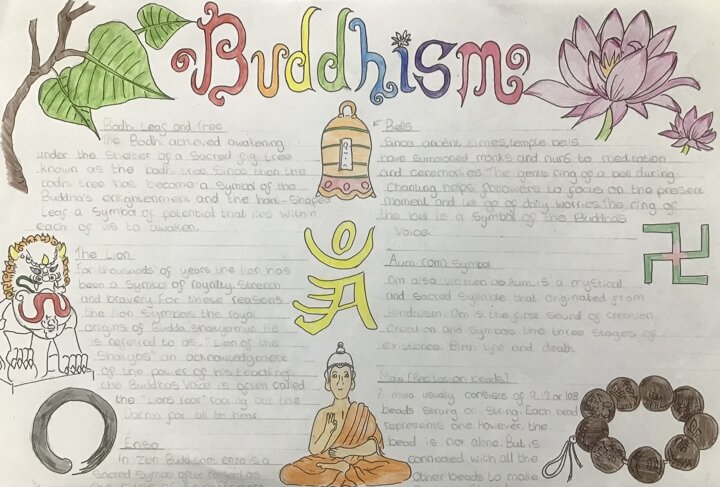 Buddhism
Bodhi Leaf and Tree
The Bodhi achieved awakening
under the shelter of a Sacred fig tree
known as the bodhi tree Since then the
bodhi tree has become a symbol of the
Buddha's enlightenment and the hart-Shaped
Leaf a Symbol of potential that lies within
each of us to awaken.
The Lion
For thousands of years the lion has
been a Symbol of royalty, strength
and bravery. For these reasons
the lion Symbols the royal
origins of Budda Shakyamuni. He
is referred to as "Lion of the
Shakyas" an acknowledgment
of the power of his teachings
the Buddhas Voice is often called
the "Lions roar" roaring out the
Darma for all to hear.
Enso
In Zen Buddhism, enso is a
Sacred Symbol
Bells
Since ancient times, temple bells
have summoned monks and nuns to meditation
and ceremonies. The gentle ring of a bell during
Chanting helps followers to focus on the present
moment and let go of daily worries. The ring of
the bell is a Symbol of the Buddhas
Voice.
Aum (om) Symbol
Om also written as Aum, is a mystical
and sacred Syllable that originated from
Hinduism. Om is the first sound of creation
Creation and Symbols the three Stages of
existence Birth life and death.
Mala (Recitation beads)
A mala usually consists of 9, 21 or 108
beads Strung on String. Each bead
represents one. However, the
bead is not alone. But is
connected with all the
other beads to make